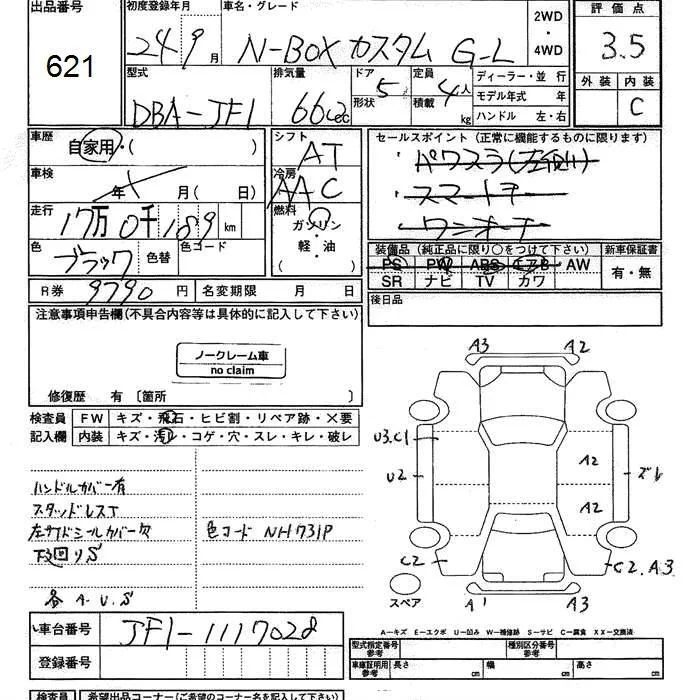 出品番号
621
初度登録年月
24 9月
車名・グレード
N-BOX カスタム G-L
2WD
・
4WD
評価点
3.5
外装 内装
C
型式
DBA-JF1
排気量
660cc
ドア
形状
5
定員
積載
4人
kg
ディーラー・並 行
モデル年式 年
ハンドル 左・右
車歴
自家用・( )
車検
年 月( 日)
走行
17万0千189km
色
ブラック
色替
色コード
シフト
AT
冷房
AAC
燃料
ガソリン
・
軽・油
( )
セールスポイント (正常に機能するものに限ります)
パワスラ(左側)
スマートキー
ワンオーナー
装備品 (純正品に限り○をつけて下さい)
PS PW ABS エアB AW
SR ナビ TV カワ
新車保証書
有・無
後日品
R券 9790円
名変期限 月 日
注意事項申告欄(不具合内容等は具体的に記入して下さい)
ノークレーム車
no claim
修復歴 有 〔箇所 〕
検査員
記入欄
FW キズ・飛石・ヒビ割・リペア跡・×要
内装 キズ・汚レ・コゲ・穴・スレ・キレ・破レ
ハンドルカバー有
スタッドレスT
左サイドシールカバー欠
下廻りS
各A.U.S
色コード NH731P
A3 A2
U3.C1
U2
A2
A2
ズレ
C2
C2.A3
A1 A3
スペア
A−キズ E−エクボ U−凹み W−補修跡 S−サビ C−腐食 XX−交換済
車台番号
JF1-1117028
登録番号
型式指定番号
参考
種別区分番号
参考
車庫証明用
参考
長さ cm
幅 cm
高さ cm
検査員
希望出品コーナー(ご希望のコーナー名を記入下さい)